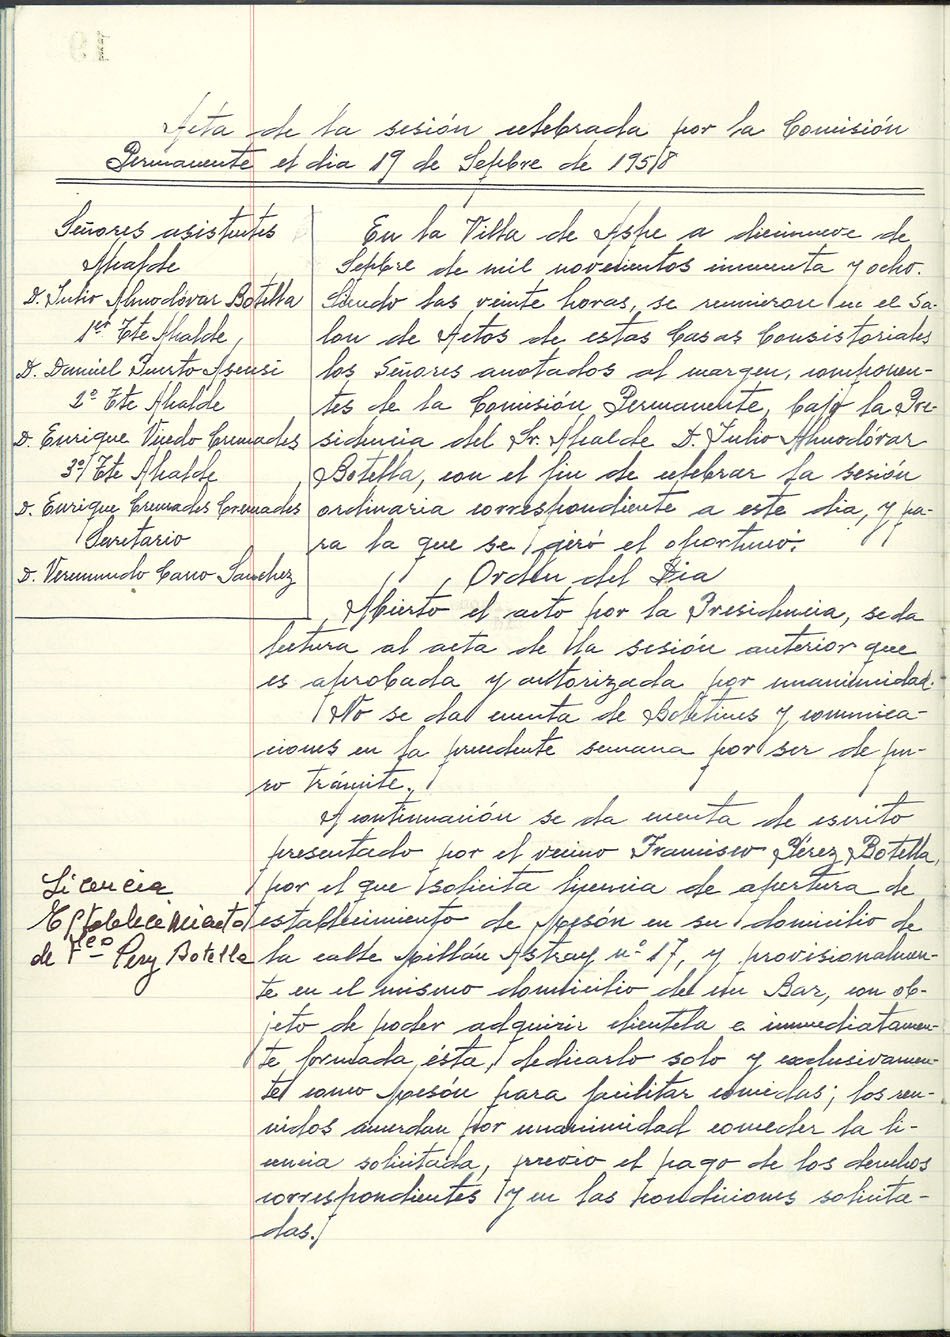 Acta de la sesión celebrada por la Comisión
Permanente el dia 19 de Sepbre de 1958
Señores asistentes
Alcalde
D. Julio Almodóvar Botella
1er Tte Alcalde
D. Daniel Puerto Asensi
2º Tte Alcalde
D. Enrique Vicedo Cremades
3º Tte Alcalde
D. Enrique Cremades Cremades
Secretario
D. Veremundo Cano Sanchez
En la Villa de Aspe a diecinueve de
Sepbre de mil novecientos cincuenta y ocho.
Siendo las veinte horas, se reunieron en el Sa-
lon de Actos de estas Casas Consistoriales
los Señores anotados al margen, componen-
tes de la Comisión Permanente, bajo la Pre-
sidencia del Sr. Alcalde D. Julio Almodóvar
Botella, con el fin de celebrar la sesión
ordinaria correspondiente a este dia, y pa-
ra la que se giró el oportuno:
Orden del Dia
Abierto el acto por la Presidencia, se da
lectura al acta de la sesión anterior que
es aprobada y autorizada por unanimidad.
No se da cuenta de Boletines y comunica-
ciones en la precedente semana por ser de pu-
ro trámite.
A continuación se da cuenta de escrito
presentado por el vecino Francisco Pérez Botella,
por el que solicita licencia de apertura de
establecimiento de Mesón en su domicilio de
la calle Millán Astray nº 17, y provisionalmen-
te en el mismo domicilio de un Bar, con ob-
jeto de poder adquirir clientela e inmediatamen-
te formada ésta, dedicarlo solo y exclusivamen-
te como Mesón para facilitar comidas; los reu-
nidos acuerdan por unanimidad conceder la li-
cencia solicitada, previo el pago de los derechos
correspondientes y en las condiciones solicita-
das.
Licencia
Establecimiento
de Fco Perez Botella